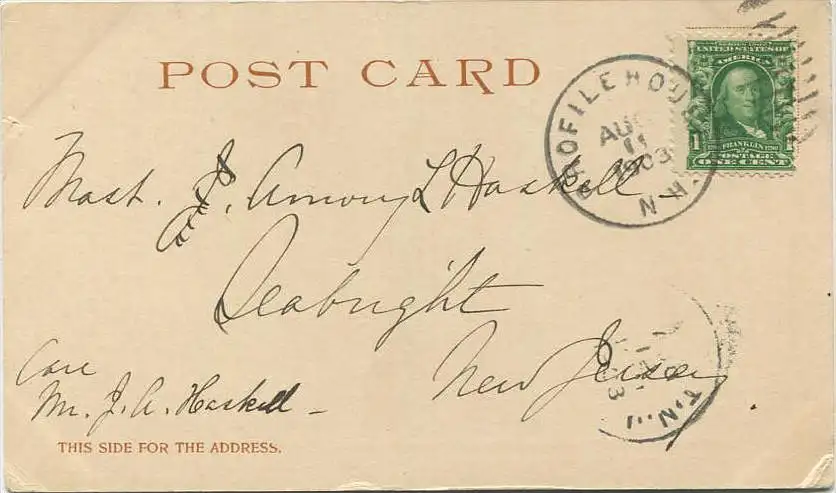 POST CARD
PROFILE HOUSE
AUG
11
1903
N.H.
UNITED STATES OF
AMERICA
1 FRANKLIN 1
POSTAGE
ONE CENT
Mast. J. Amory L Haskell
Seabright
New Jersey.
Care
Mr. J. A. Haskell
THIS SIDE FOR THE ADDRESS.